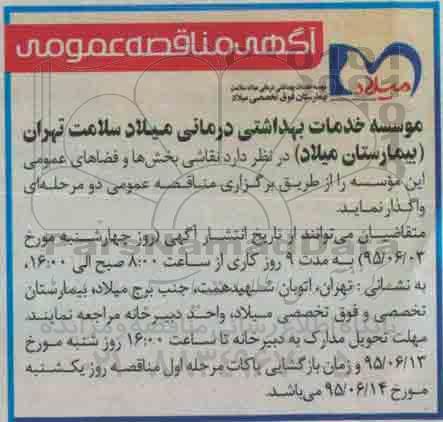 آگهی مناقصه عمومی
میلاد
موسسه خدمات بهداشتی درمانی میلاد سلامت
بیمارستان فوق تخصصی میلاد
موسسه خدمات بهداشتی درمانی میلاد سلامت تهران
(بیمارستان میلاد) در نظر دارد نقاشی بخش‌ها و فضاهای عمومی
این مؤسسه را از طریق برگزاری مناقصه عمومی دو مرحله‌ای
واگذار نماید.
متقاضیان می‌توانند از تاریخ انتشار آگهی (روز چهارشنبه مورخ
۹۵/۰۶/۰۳) به مدت ۹ روز کاری از ساعت ۸:۰۰ صبح الی ۱۶:۰۰،
به نشانی: تهران، اتوبان شهیدهمت، جنب برج میلاد، بیمارستان
تخصصی و فوق تخصصی میلاد، واحد دبیرخانه مراجعه نمایند.
مهلت تحویل مدارک به دبیرخانه تا ساعت ۱۶:۰۰ روز شنبه مورخ
۹۵/۰۶/۱۳ و زمان بازگشایی پاکات مرحله اول مناقصه روز یکشنبه
مورخ ۹۵/۰۶/۱۴ می‌باشد.